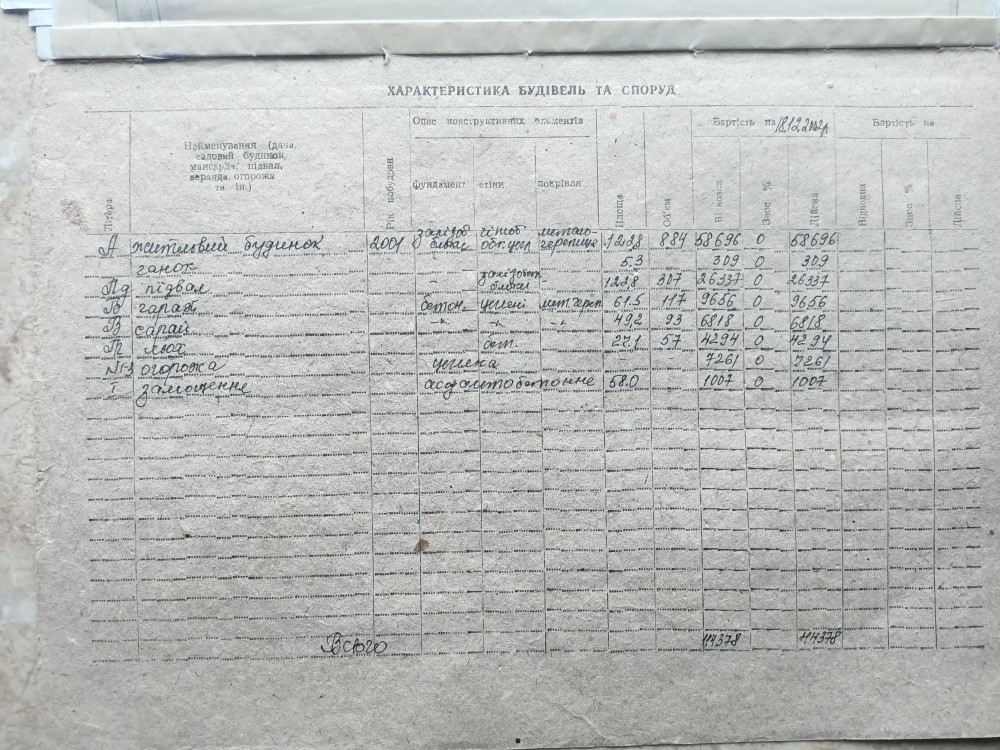 ХАРАКТЕРИСТИКА БУДІВЕЛЬ ТА СПОРУД
Літера
Найменування (дача, садовий будинок, мансарда, підвал, веранда, огорожа та ін.)
Рік побудови
Опис конструктивних елементів
фундамент стіни покрівля
Площа
Об'єм
Вартість на 18.12.2002р
Відновна Знос % Дійсна
Вартість на
Відновна Знос % Дійсна
А житловий будинок 2001 залізоб блоки гіпсоб обк.цегл металочерепиця 122,8 884 58696 0 58696
ганок – – – 5.3 309 0 309
Пд підвал – залізобет блоки – 122,8 307 26337 0 26337
Б гараж бетон. цегляні мет.череп. 61.5 117 9656 0 9656
В сарай –"– –"– –"– 49,2 93 6818 0 6818
льох бет. 27.1 57 4294 0 4294
№1-3 огорожа цегляна 7261 0 7261
I замощення асфальтобетонне 58.0 1007 0 1007
Всього 114378 114378